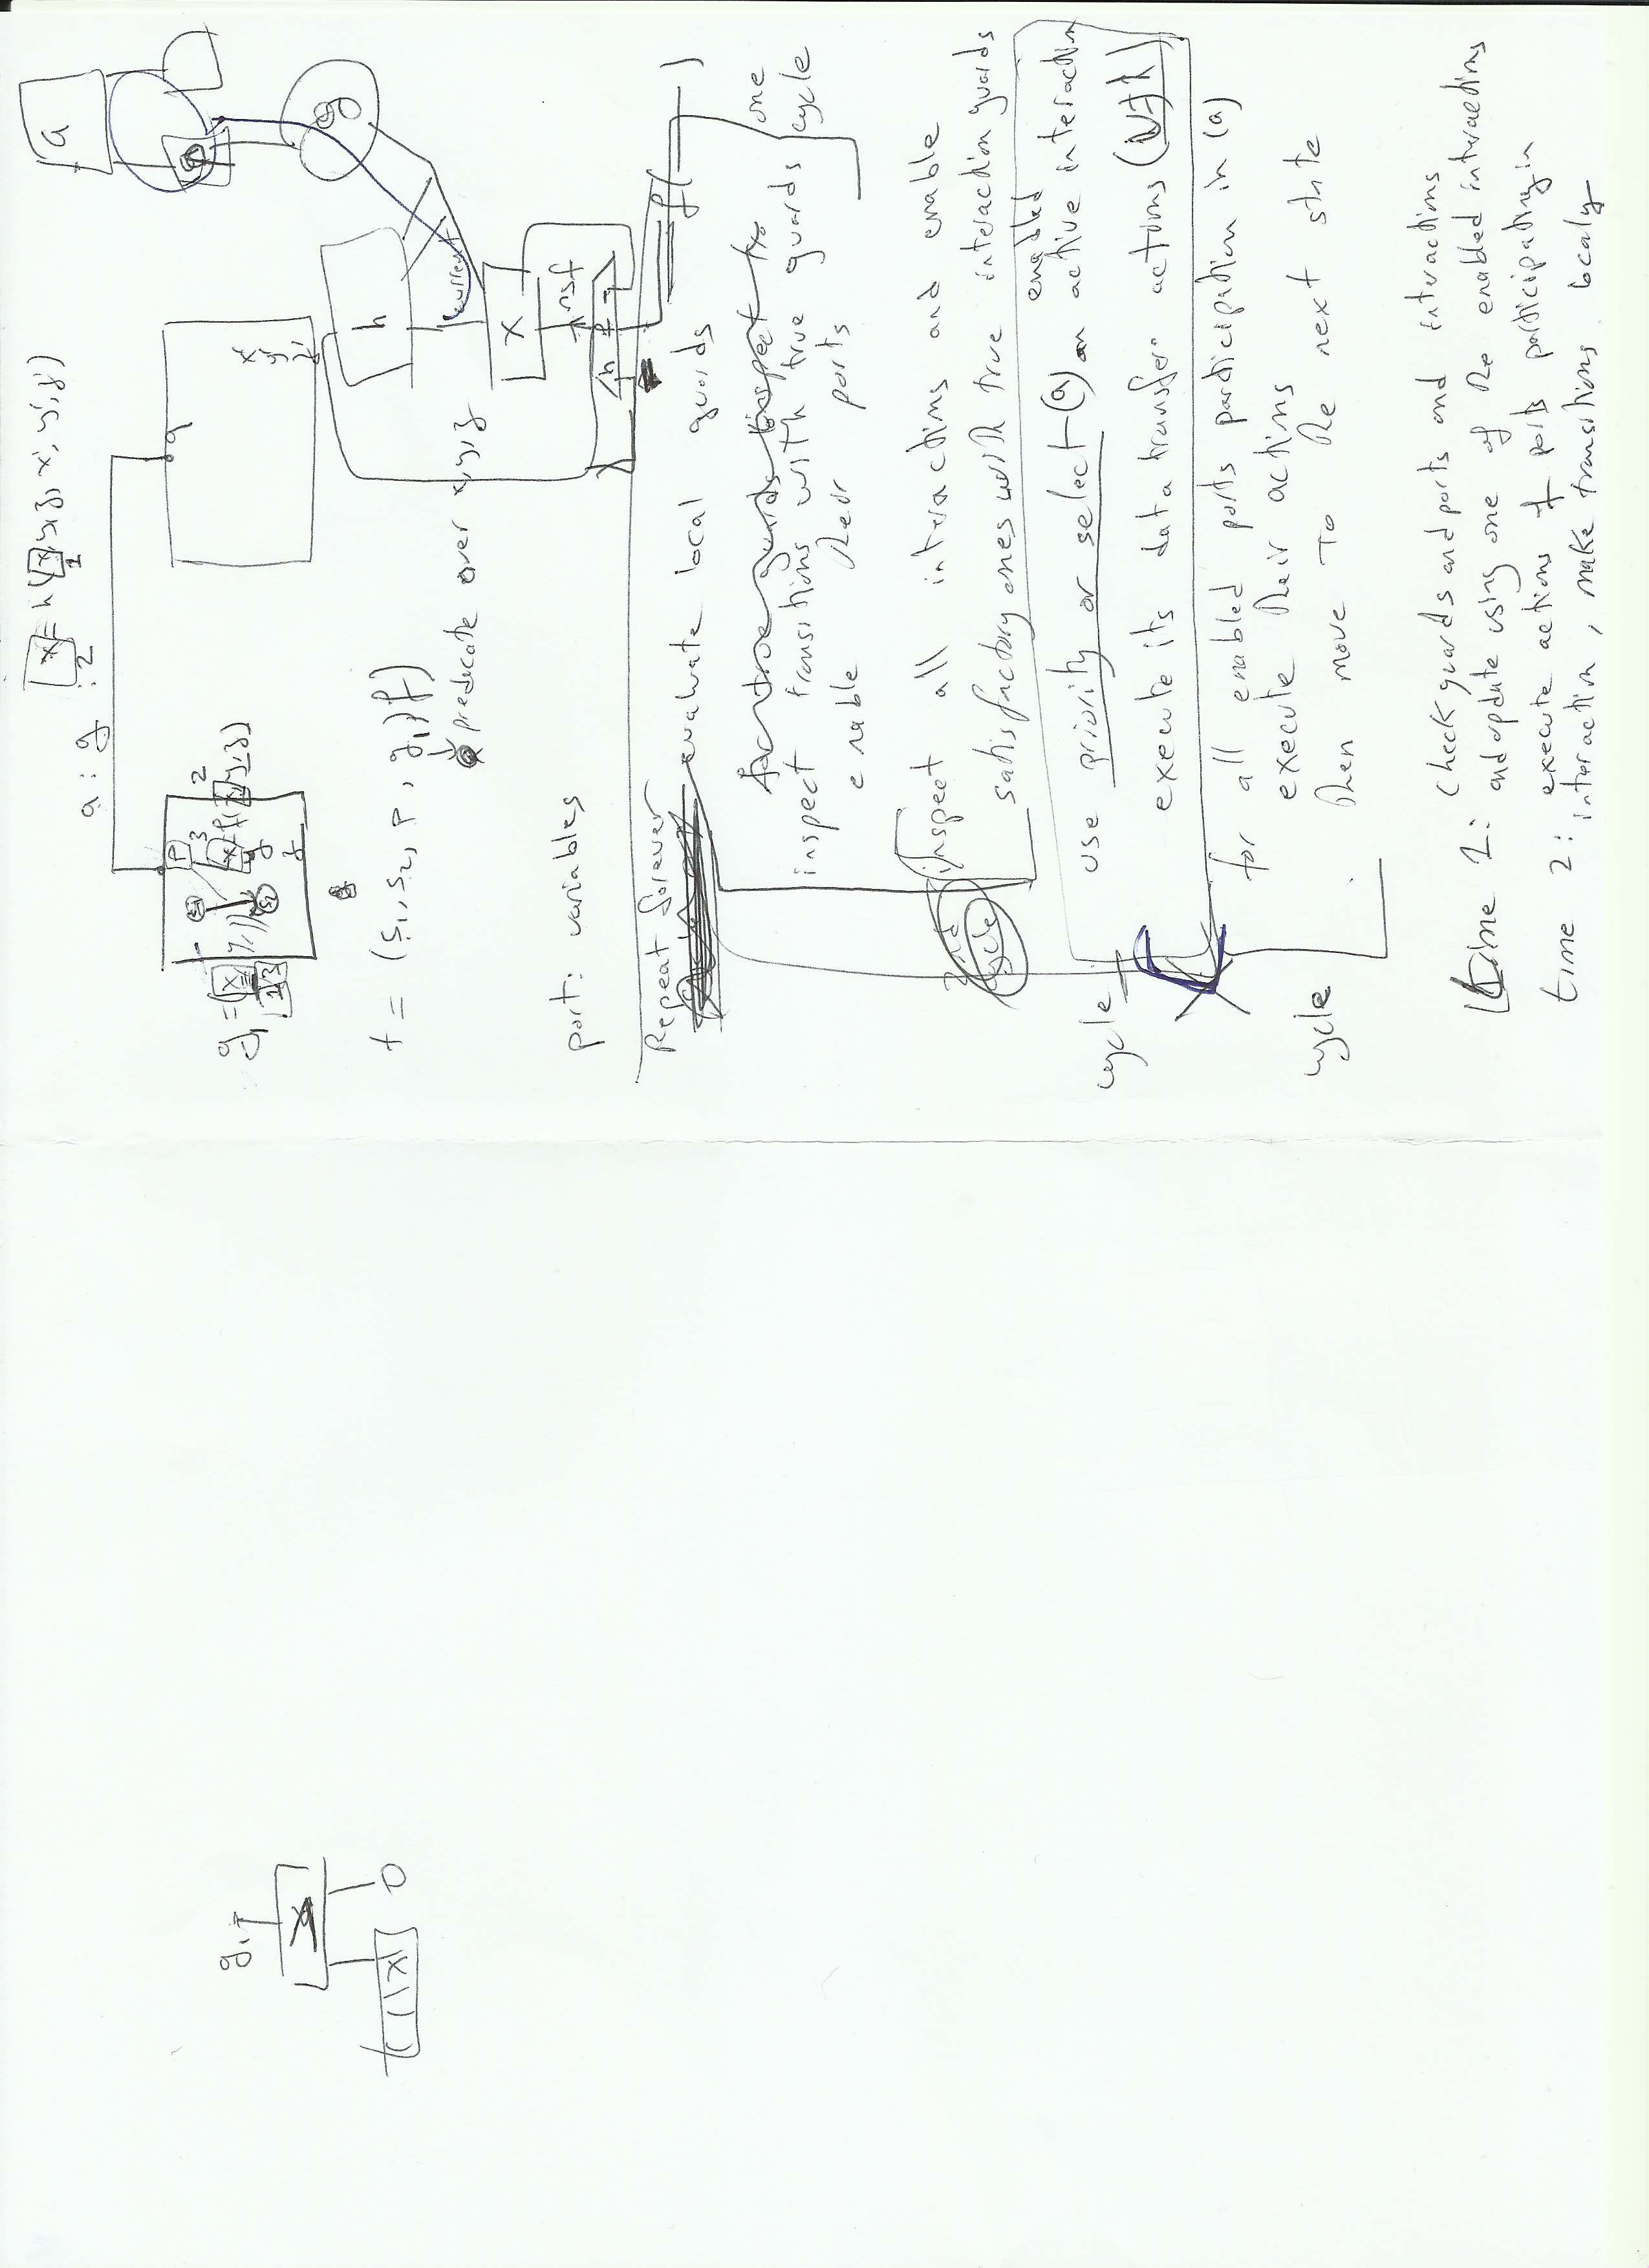 a : g
x = h(x, y, z, x', y', z')
2
1
q
x'
y'
z'
P
3
2
x = f(y, z)
y
z
S1
S2
g1 =
1 3
t = (s1, s2, P, g1, f)
predicate over x, y, z
port: variables
a
g
h
current
x
nsf
h
f
f( )
Repeat forever
evaluate local guards
inspect transitions with true guards
enable their ports
one
cycle
inspect all interactions and enable
satisfactory ones with true interaction guards
2nd
cycle
enabled
use priority or select (a) an active interaction
execute its data transfer actions
cycle
for all enabled ports participation in (a)
execute their actions
then move to the next state
cycle
time 1: check guards and ports and interactions
and update using one of the enabled interactions
time 2: execute actions of ports participating in
interaction, make transitions localy
g1
x
0